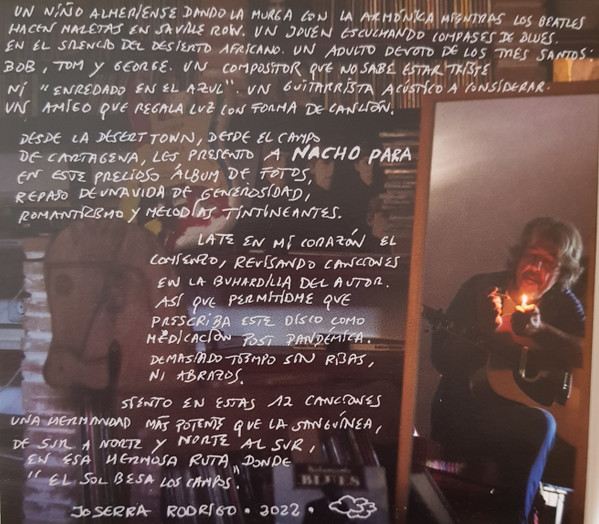 UN NIÑO ALMERIENSE DANDO LA MURGA CON LA ARMÓNICA MIENTRAS LOS BEATLES
HACEN MALETAS EN SAVILLE ROW. UN JOVEN ESCUCHANDO COMPASES DE BLUES.
EN EL SILENCIO DEL DESIERTO AFRICANO. UN ADULTO DEVOTO DE LOS TRES SANTOS:
BOB, TOM Y GEORGE. UN COMPOSITOR QUE NO SABE ESTAR TRISTE
NI "ENREDADO EN EL AZUL". UN GUITARRISTA ACÚSTICO A CONSIDERAR.
UN AMIGO QUE REGALA LUZ CON FORMA DE CANCIÓN.
DESDE LA DESERT TOWN, DESDE EL CAMPO
DE CARTAGENA, LES PRESENTO A NACHO PARA
EN ESTE PRECIOSO ÁLBUM DE FOTOS,
REPASO DE UNA VIDA DE GENEROSIDAD,
ROMANTICISMO Y MELODÍAS TINTINEANTES.
LATE EN MI CORAZÓN EL
COMIENZO, REVISANDO CANCIONES
EN LA BUHARDILLA DEL AUTOR.
ASÍ QUE PERMITIDME QUE
PRESCRIBA ESTE DISCO COMO
MEDICACIÓN POST PANDÉMICA.
DEMASIADO TIEMPO SIN RISAS,
NI ABRAZOS.
SIENTO EN ESTAS 12 CANCIONES
UNA HERMANDAD MÁS POTENTE QUE LA SANGUÍNEA,
DE SUR A NORTE Y NORTE AL SUR,
EN ESA HERMOSA RUTA DONDE
"EL SOL BESA LOS CAMPOS".
JOSERRA RODRIGO · 2022 ·
BLUES